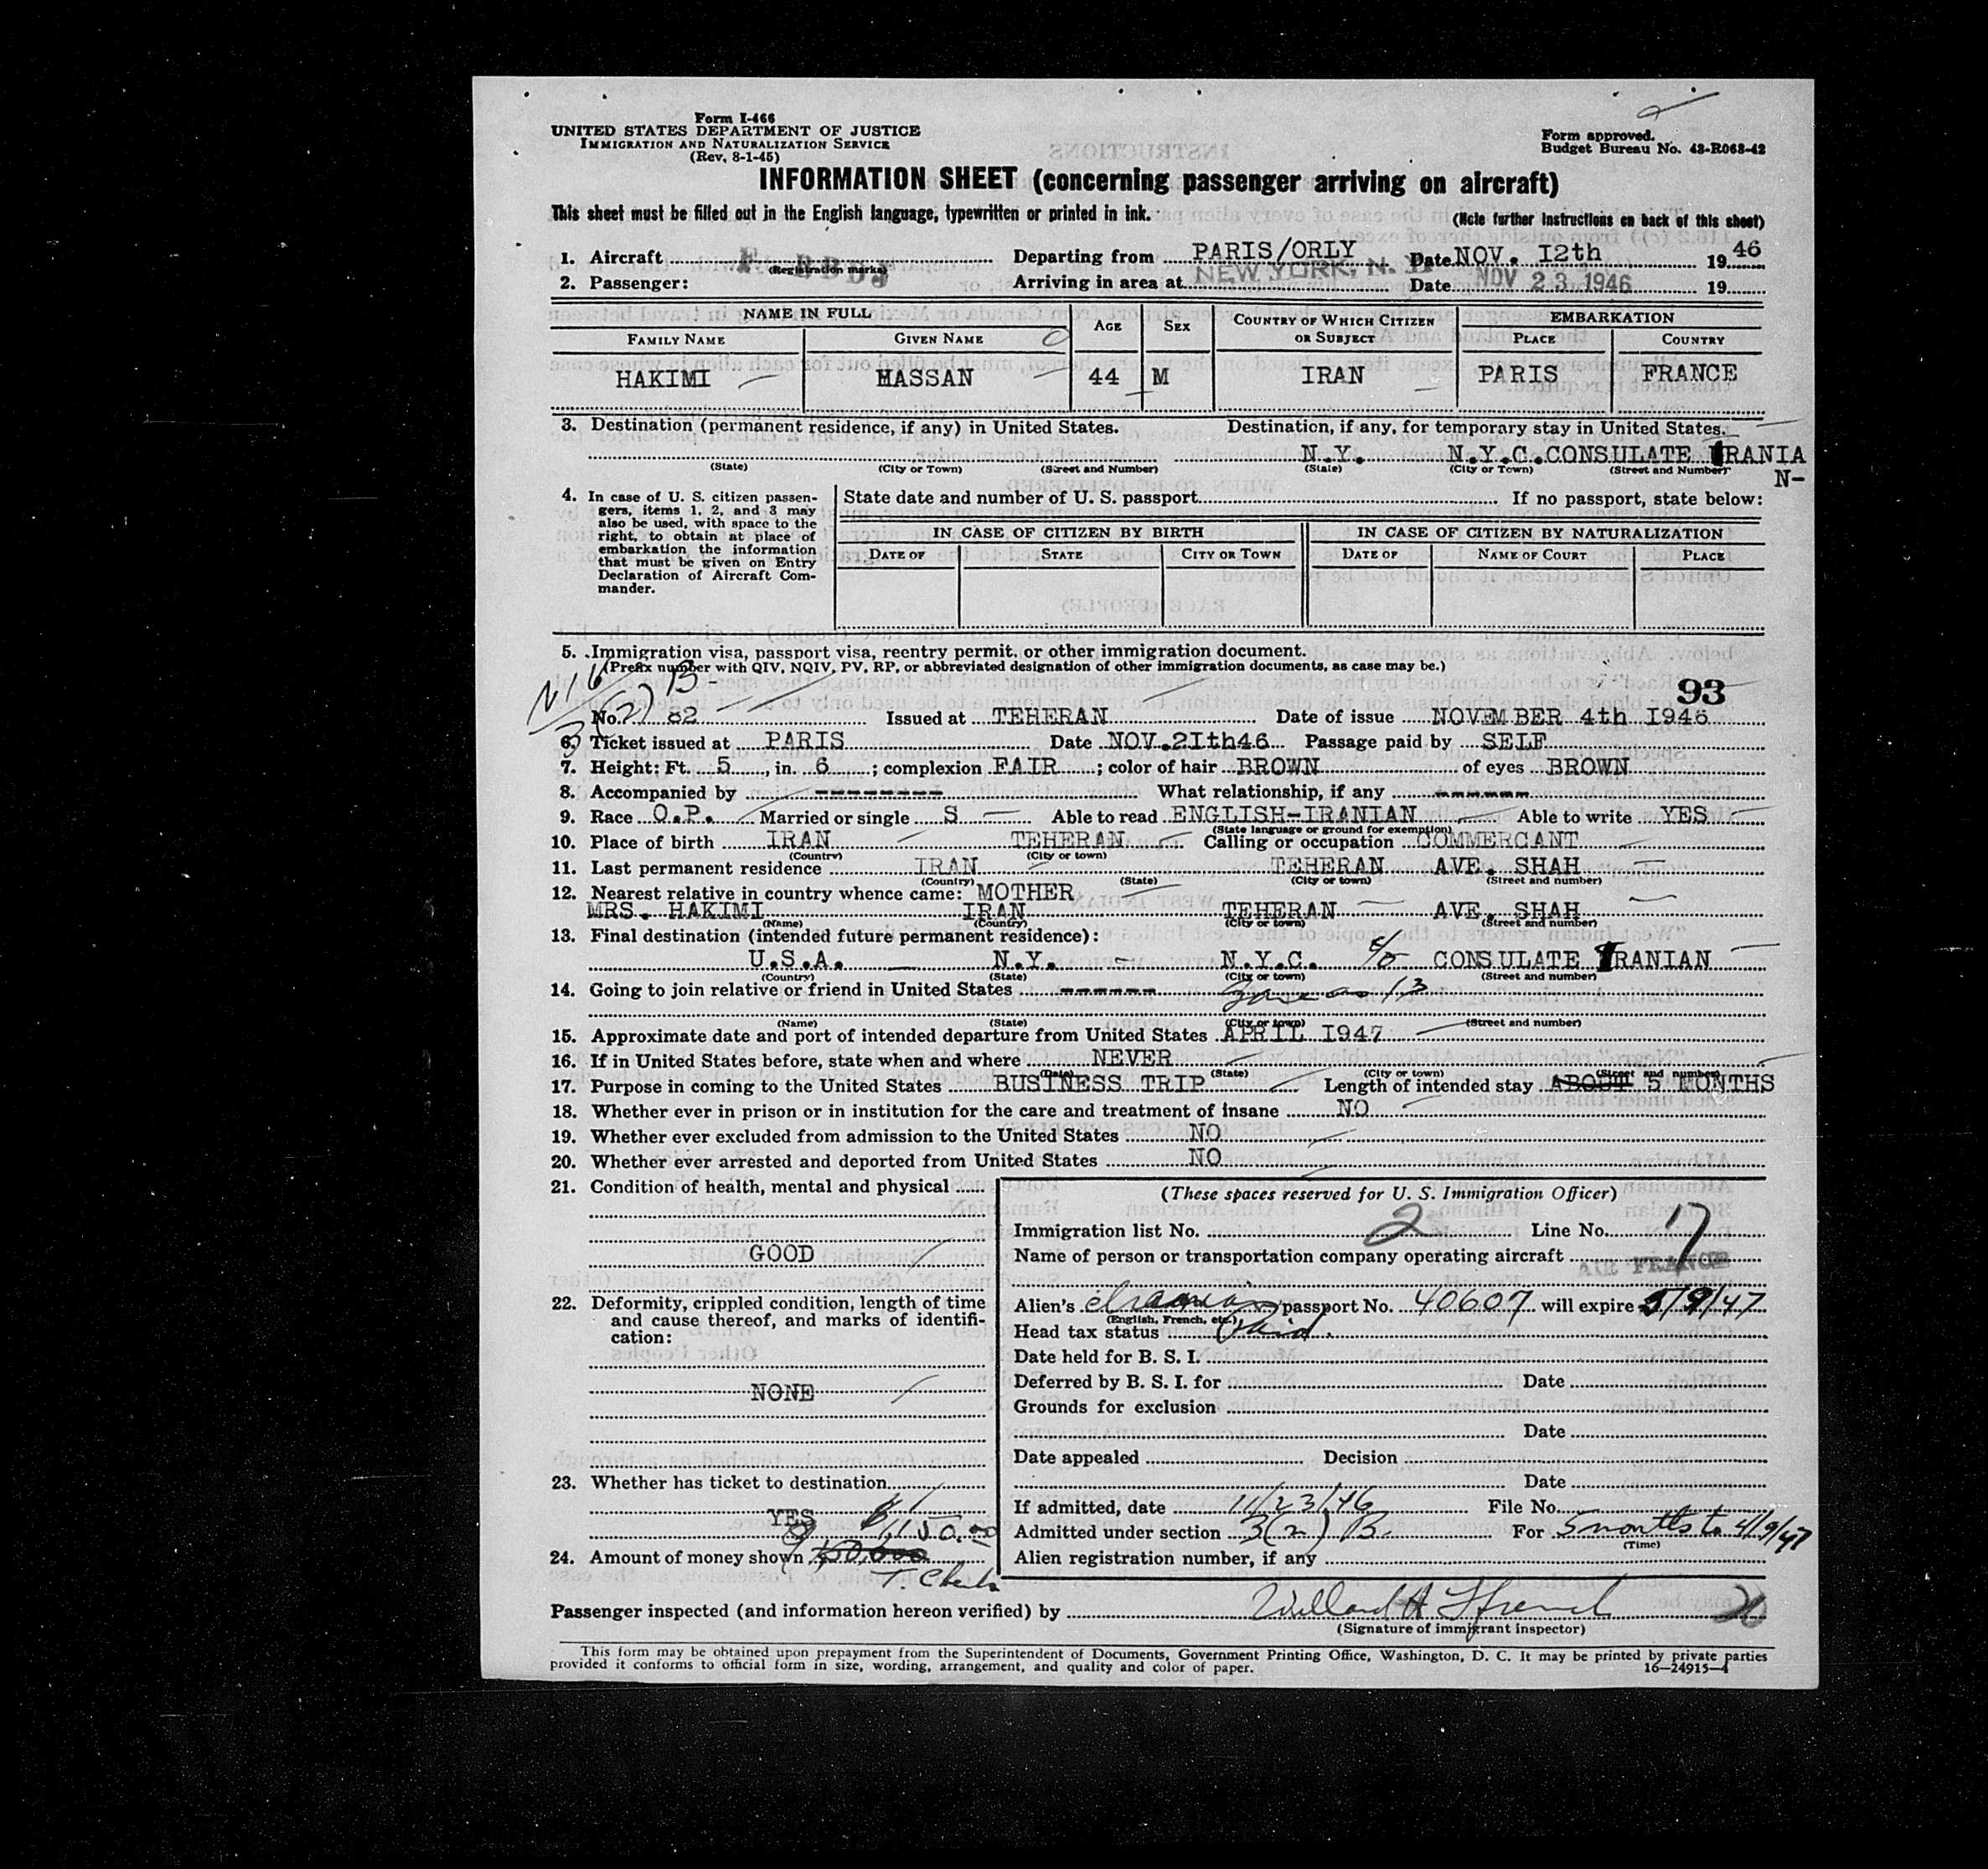 Form I-466
UNITED STATES DEPARTMENT OF JUSTICE
IMMIGRATION AND NATURALIZATION SERVICE
(Rev. 8-1-45)
Form approved.
Budget Bureau No. 43-R063-42
INFORMATION SHEET (concerning passenger arriving on aircraft)
This sheet must be filled out in the English language, typewritten or printed in ink. (Note further instructions on back of this sheet)
1. Aircraft (Registration marks) Departing from PARIS/ORLY Date NOV. I2th 1946
2. Passenger: Arriving in area at NEW YORK, N. Y. Date NOV 23 1946 19
NAME IN FULL AGE SEX COUNTRY OF WHICH CITIZEN OR SUBJECT EMBARKATION
FAMILY NAME GIVEN NAME PLACE COUNTRY
HAKIMI HASSAN 44 M IRAN PARIS FRANCE
3. Destination (permanent residence, if any) in United States. Destination, if any, for temporary stay in United States.
N.Y. N.Y.C. CONSULATE IRANIA
N-
(State) (City or Town) (Street and Number) (State) (City or Town) (Street and Number)
4. In case of U. S. citizen passengers, items 1, 2, and 3 may also be used, with space to the right, to obtain at place of embarkation the information that must be given on Entry Declaration of Aircraft Commander.
State date and number of U. S. passport If no passport, state below:
IN CASE OF CITIZEN BY BIRTH IN CASE OF CITIZEN BY NATURALIZATION
DATE OF STATE CITY OR TOWN DATE OF NAME OF COURT PLACE
5. Immigration visa, passport visa, reentry permit, or other immigration document.
(Prefix number with QIV, NQIV, PV, RP, or abbreviated designation of other immigration documents, as case may be.)
3(2) B
93
No. 82 Issued at TEHERAN Date of issue NOVEMBER 4th I946
6. Ticket issued at PARIS Date NOV.2Ith46 Passage paid by SELF
7. Height: Ft. 5, in. 6; complexion FAIR; color of hair BROWN of eyes BROWN
8. Accompanied by -------- What relationship, if any ------
9. Race O.P. Married or single S Able to read ENGLISH-IRANIAN Able to write YES
(State language or ground for exemption)
10. Place of birth IRAN TEHERAN Calling or occupation COMMERCANT
(Country) (City or town)
11. Last permanent residence IRAN TEHERAN AVE. SHAH
(Country) (State) (City or town) (Street and number)
12. Nearest relative in country whence came: MOTHER
MRS. HAKIMI IRAN TEHERAN AVE. SHAH
(Name) (Country) (City or town) (Street and number)
13. Final destination (intended future permanent residence):
U.S.A. N.Y. N.Y.C. c/o CONSULATE IRANIAN
(Country) (State) (City or town) (Street and number)
14. Going to join relative or friend in United States ------
(Name) (State) (City or town) (Street and number)
15. Approximate date and port of intended departure from United States APRIL I947
16. If in United States before, state when and where NEVER
(Date) (State) (City or town) (Street and number)
17. Purpose in coming to the United States BUSINESS TRIP Length of intended stay ABOUT 5 MONTHS
18. Whether ever in prison or in institution for the care and treatment of insane NO
19. Whether ever excluded from admission to the United States NO
20. Whether ever arrested and deported from United States NO
21. Condition of health, mental and physical
GOOD
22. Deformity, crippled condition, length of time and cause thereof, and marks of identification:
NONE
23. Whether has ticket to destination
YES
24. Amount of money shown
(These spaces reserved for U. S. Immigration Officer)
Immigration list No. 2 Line No. 17
Name of person or transportation company operating aircraft
AIR FRANCE
Alien's Iranian passport No. 40607 will expire 5/9/47
(English, French, etc.)
Head tax status Paid.
Date held for B. S. I.
Deferred by B. S. I. for Date
Grounds for exclusion
Date
Date appealed Decision
Date
If admitted, date 11/23/46 File No.
Admitted under section 3(2) B. For 5 months to 4/9/47
(Time)
Alien registration number, if any
Passenger inspected (and information hereon verified) by Willard H
(Signature of immigrant inspector)
This form may be obtained upon prepayment from the Superintendent of Documents, Government Printing Office, Washington, D. C. It may be printed by private parties
provided it conforms to official form in size, wording, arrangement, and quality and color of paper. 16—24915-1